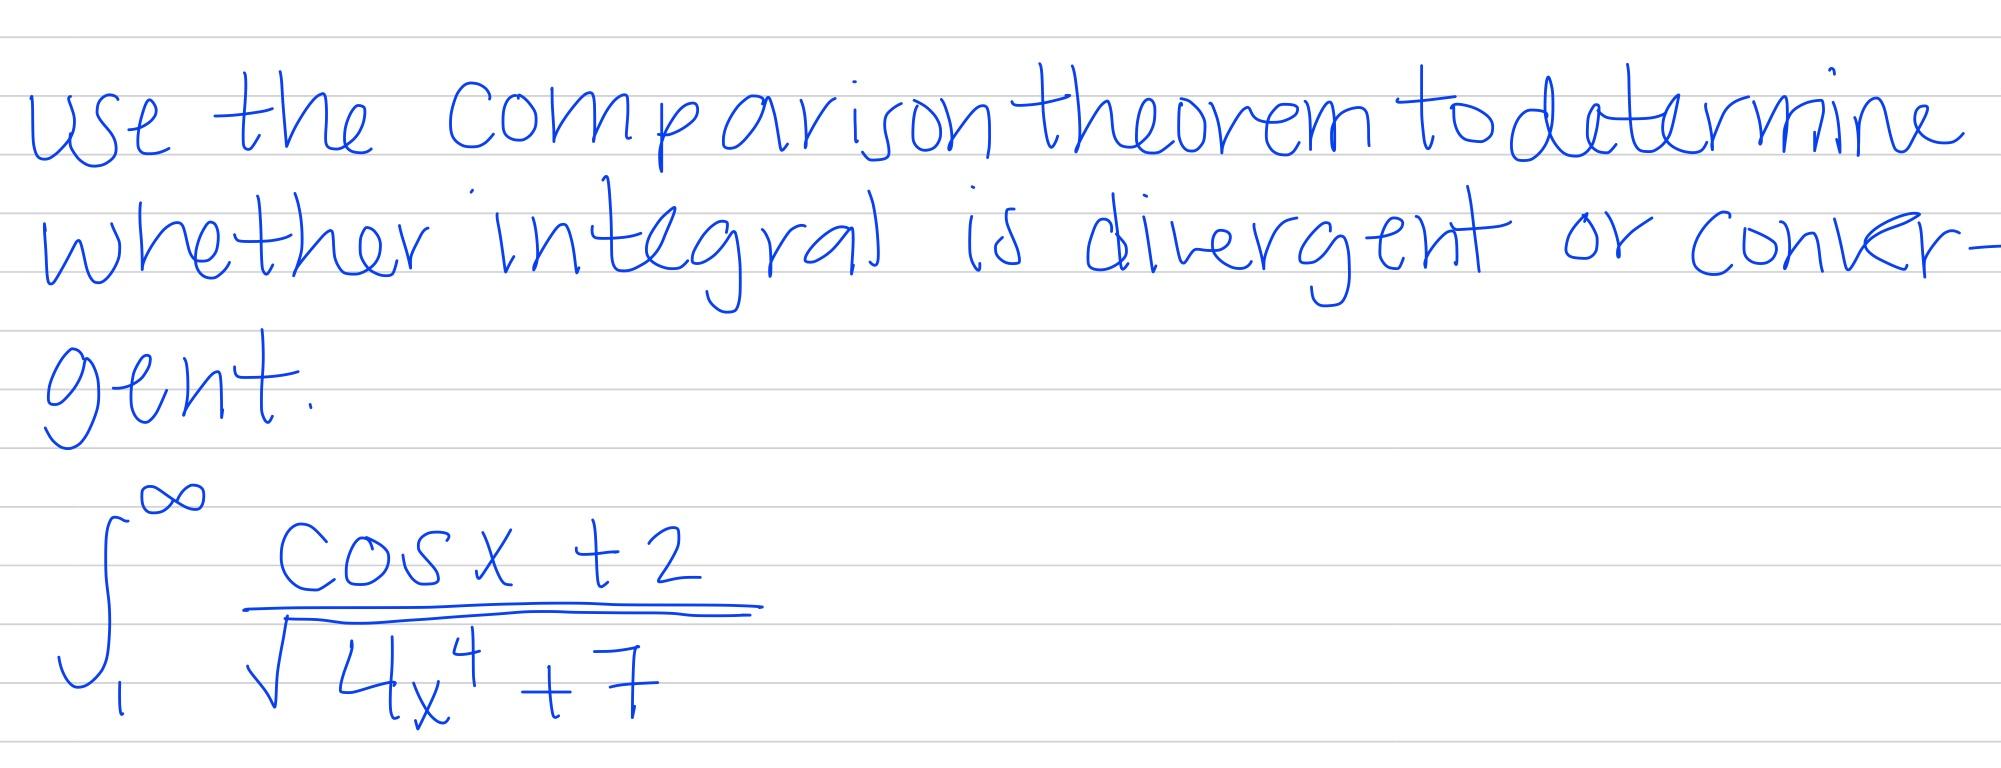 use the comparison theorem to determine
whether integral is divergent or conver-
gent.
∫₁^∞ (cosx + 2)/√(4x⁴ + 7)